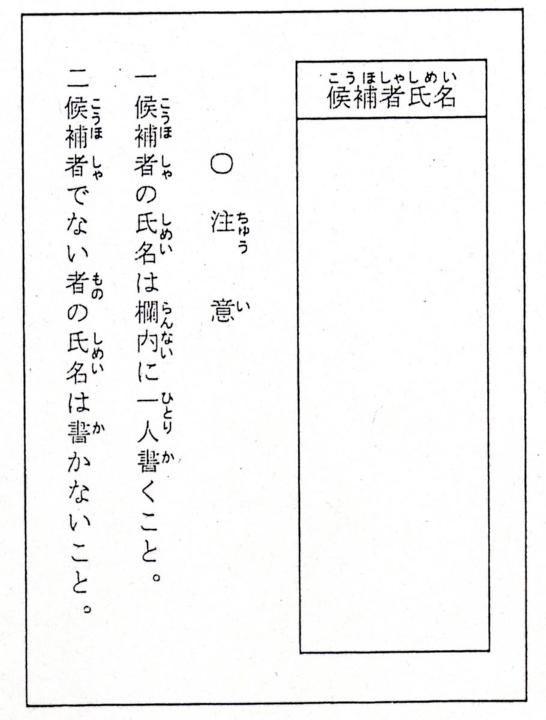 候補者氏名
こうほしゃしめい
○注意
ちゅうい
一候補者の氏名は欄内に一人書くこと。
こうほしゃしめいらんないひとりか
二候補者でない者の氏名は書かないこと。
こうほしゃものしめいか